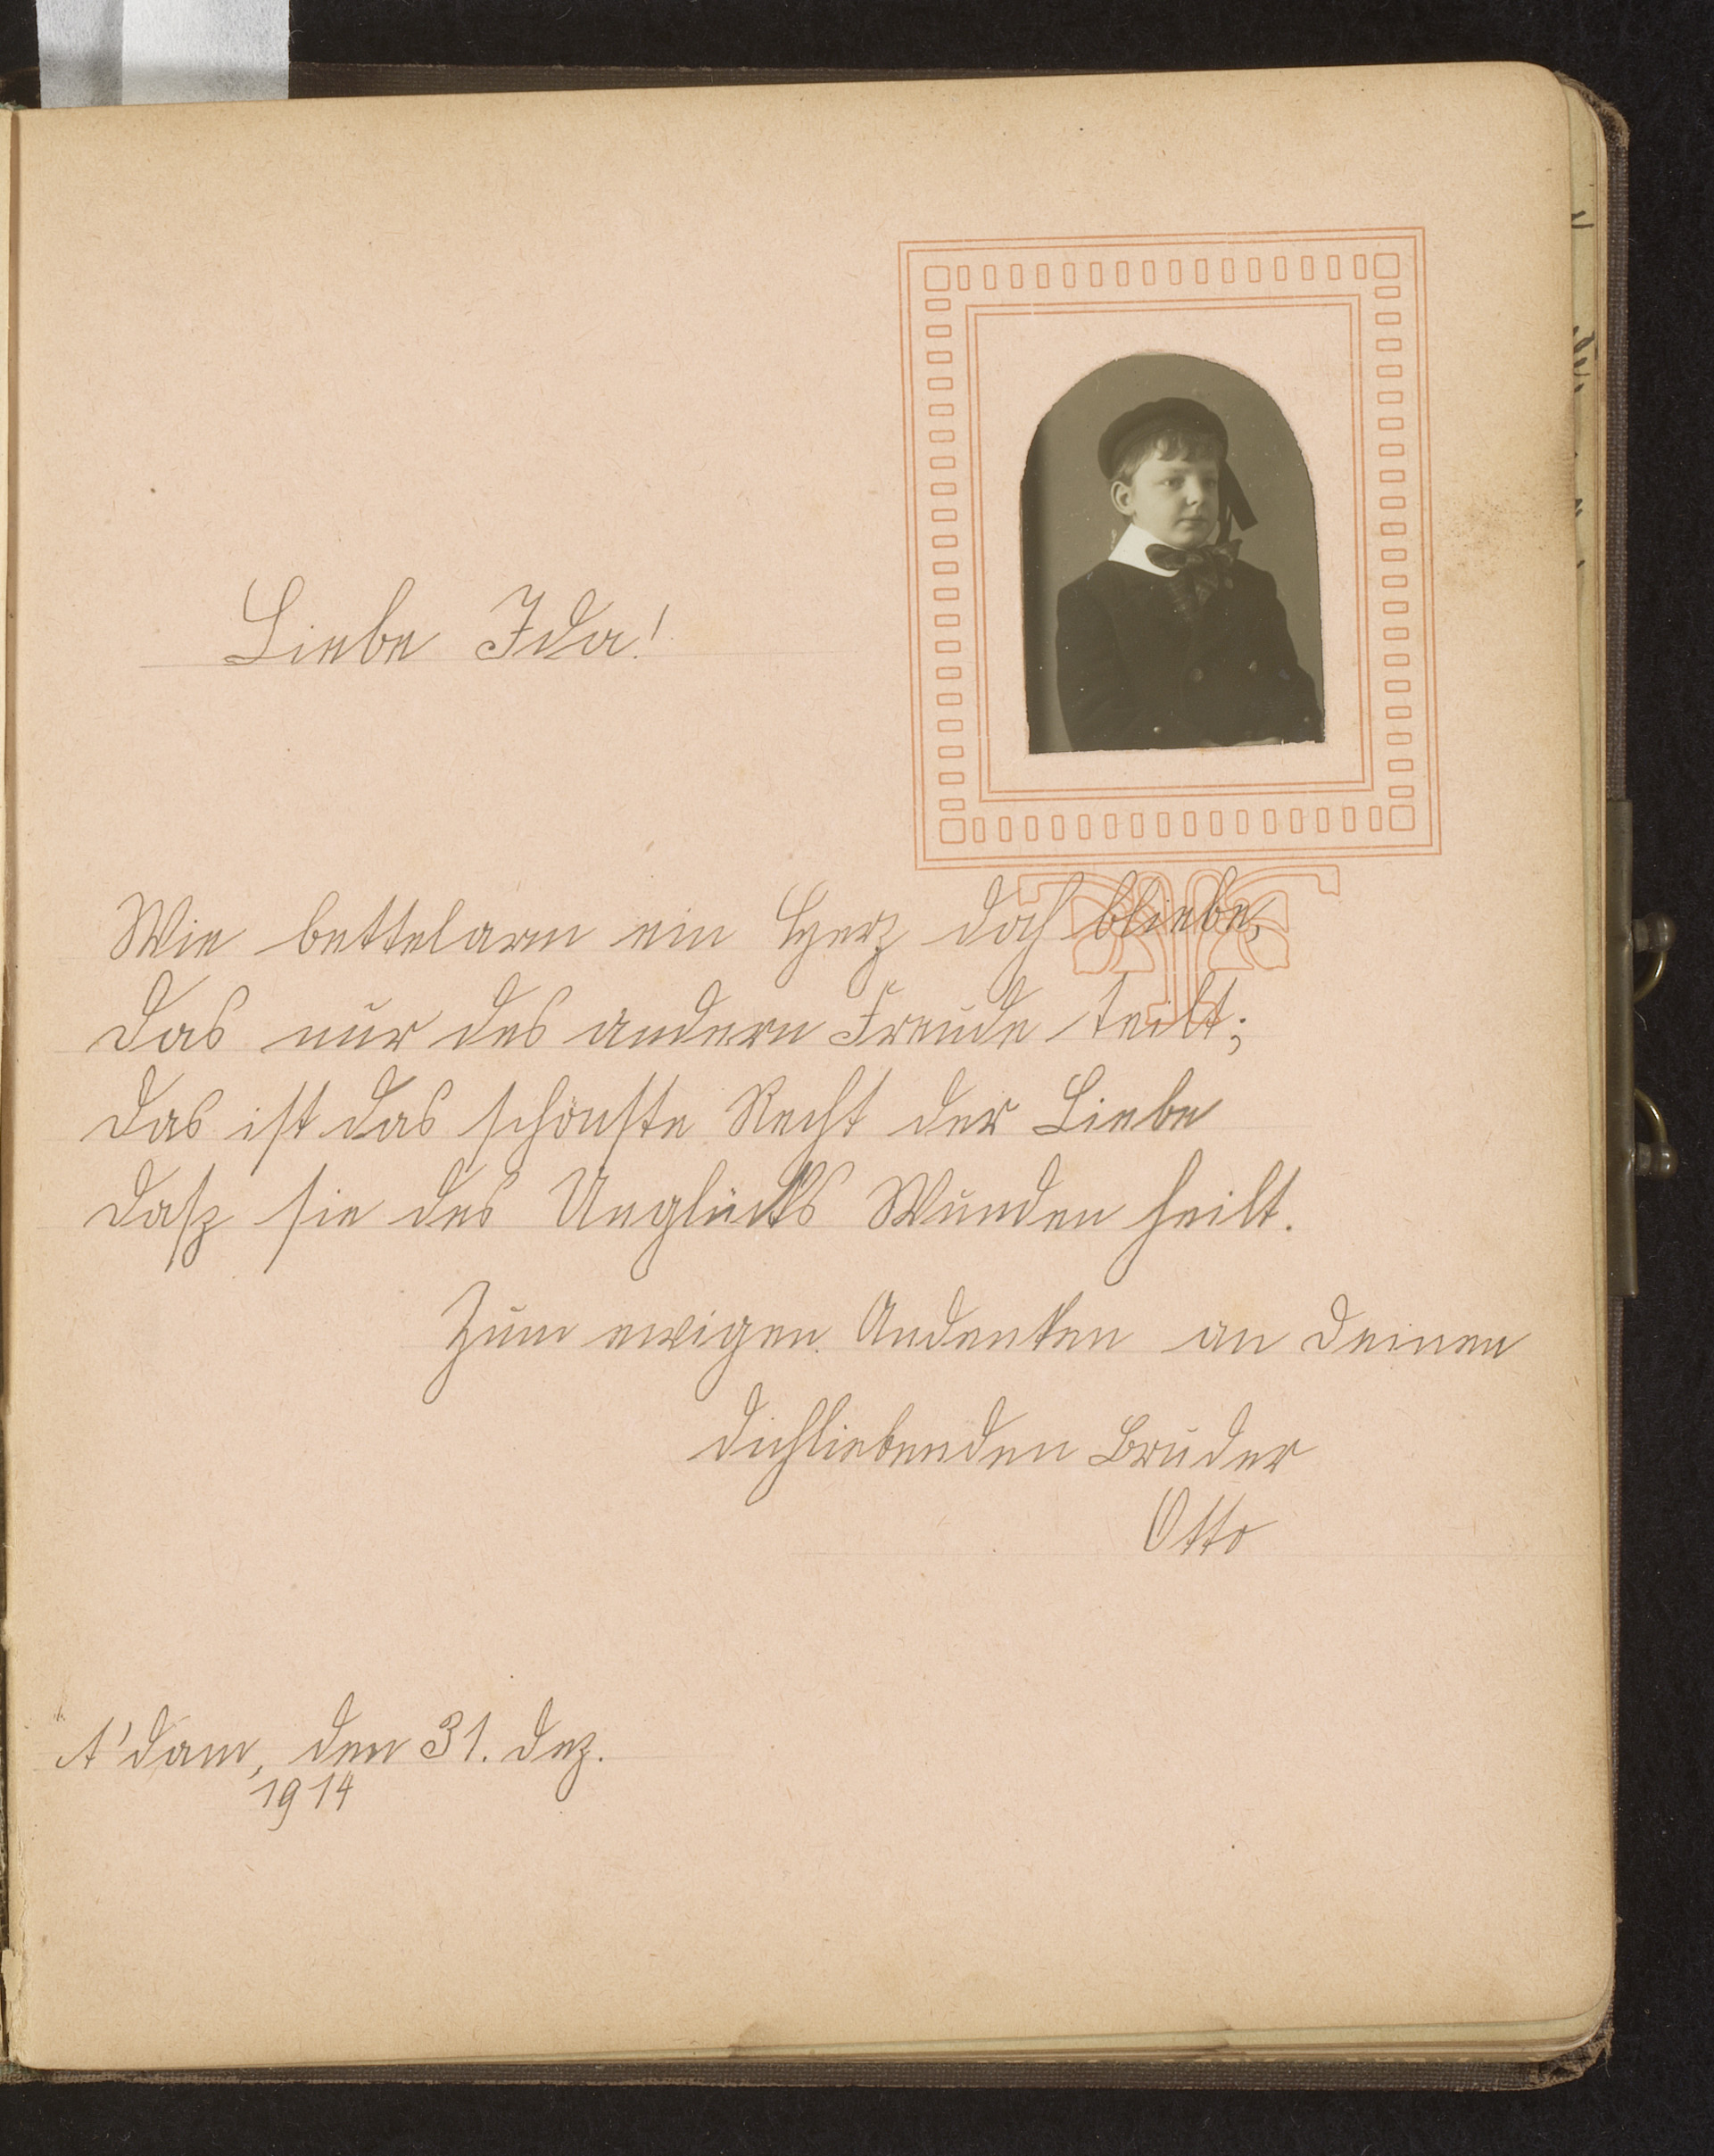 Liebe Ida!
Wie bettelarm ein Herz doch bliebe,
das nur des andern Freude teilt;
das ist das schönste Recht der Liebe
dasz sie des Unglücks Wunden heilt.
Zum ewigen Andenken an deinen
dichliebenden Bruder
Otto
A'dam, den 31. Dez.
1914